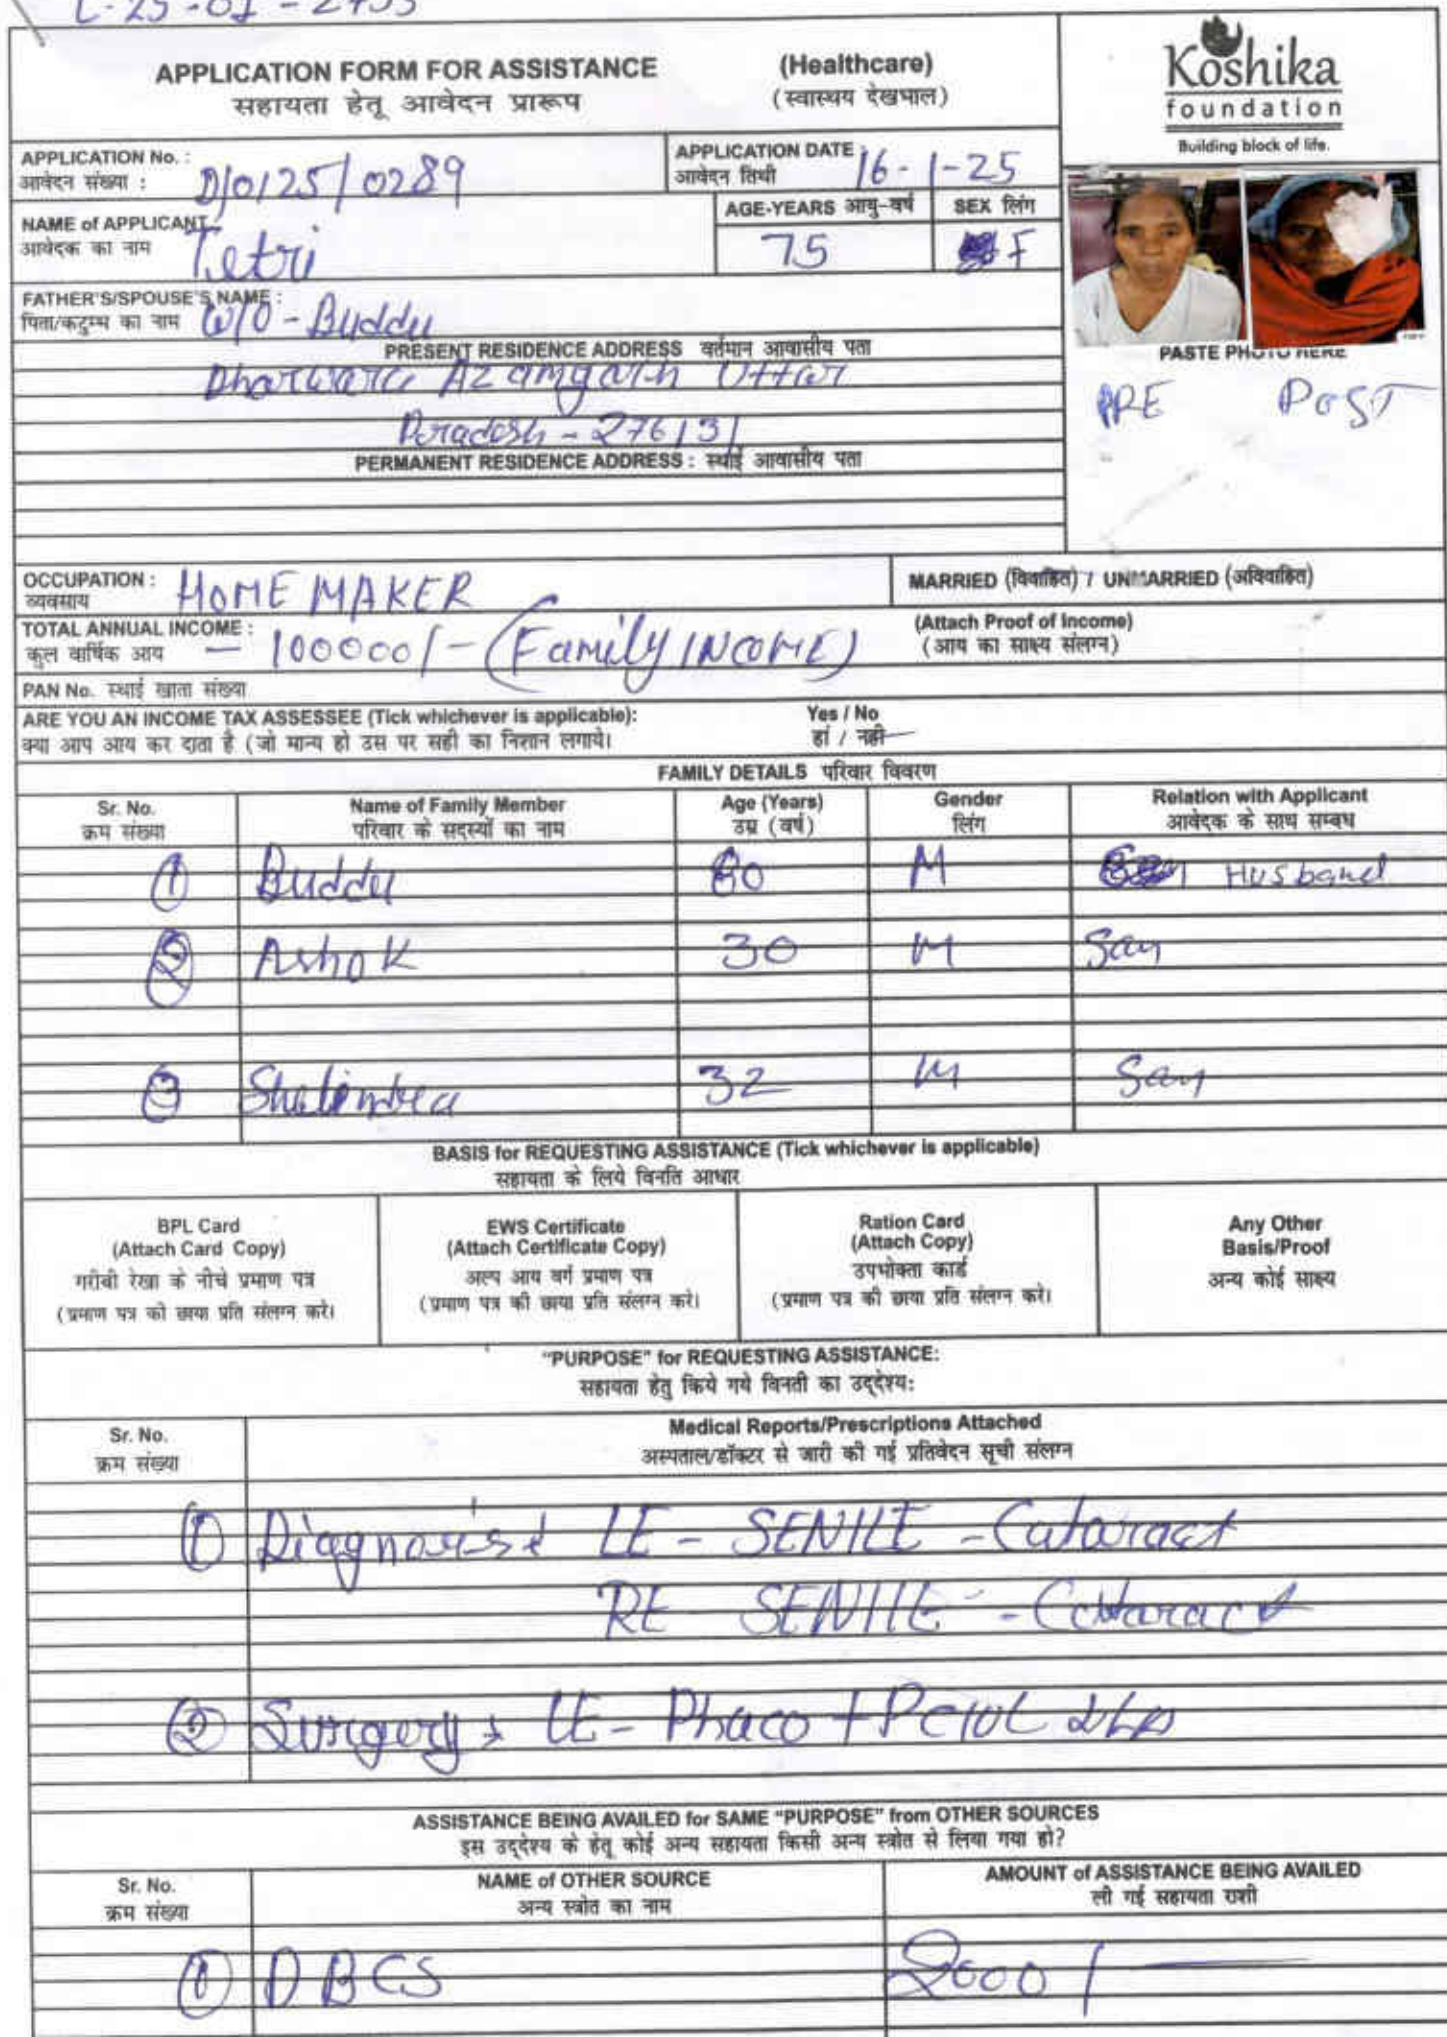 APPLICATION FORM FOR ASSISTANCE (Healthcare)
सहायता हेतू आवेदन प्रारूप (स्वास्थय देखभाल)
Koshika
foundation
Building block of life.
APPLICATION No. :
आवेदन संख्या : D/0125/0289
APPLICATION DATE
आवेदन तिथी 16-1-25
NAME of APPLICANT
आवेदक का नाम Tetri
AGE-YEARS आयु-वर्ष SEX लिंग
75 F
FATHER'S/SPOUSE'S NAME :
पिता/कटुम्ब का नाम W/O - Buddu
PRESENT RESIDENCE ADDRESS वर्तमान आवासीय पता
Azamgarh Uttar
Pradesh - 276131
PERMANENT RESIDENCE ADDRESS : स्थाई आवासीय पता
PASTE PHOTO HERE
PRE POST
OCCUPATION :
व्यवसाय HOME MAKER
MARRIED (विवाहित) / UNMARRIED (अविवाहित)
TOTAL ANNUAL INCOME :
कुल वार्षिक आय — 100000/- (Family INCOME)
(Attach Proof of Income)
(आय का साक्ष्य संलग्न)
PAN No. स्थाई खाता संख्या
ARE YOU AN INCOME TAX ASSESSEE (Tick whichever is applicable): Yes / No
क्या आप आय कर दाता है (जो मान्य हो उस पर सही का निशान लगाये। हां / नही
FAMILY DETAILS परिवार विवरण
Sr. No. Name of Family Member Age (Years) Gender Relation with Applicant
क्रम संख्या परिवार के सदस्यों का नाम उम्र (वर्ष) लिंग आवेदक के साथ सम्बध
1 Buddu 80 M Husband
2 Ashok 30 M Son
3 32 M Son
BASIS for REQUESTING ASSISTANCE (Tick whichever is applicable)
सहायता के लिये विनति आधार
BPL Card
(Attach Card Copy)
गरीबी रेखा के नीचे प्रमाण पत्र
(प्रमाण पत्र की छाया प्रति संलग्न करे।
EWS Certificate
(Attach Certificate Copy)
अल्प आय वर्ग प्रमाण पत्र
(प्रमाण पत्र की छाया प्रति संलग्न करे।
Ration Card
(Attach Copy)
उपभोक्ता कार्ड
(प्रमाण पत्र की छाया प्रति संलग्न करे।
Any Other
Basis/Proof
अन्य कोई साक्ष्य
"PURPOSE" for REQUESTING ASSISTANCE:
सहायता हेतु किये गये विनती का उद्देश्य:
Sr. No. Medical Reports/Prescriptions Attached
क्रम संख्या अस्पताल/डॉक्टर से जारी की गई प्रतिवेदन सूची संलग्न
1 LE - SENILE - Cataract
RE SENILE - Cataract
2 Surgery LE - Phaco + PCIOL
ASSISTANCE BEING AVAILED for SAME "PURPOSE" from OTHER SOURCES
इस उद्देश्य के हेतू कोई अन्य सहायता किसी अन्य स्त्रोत से लिया गया हो?
Sr. No. NAME of OTHER SOURCE AMOUNT of ASSISTANCE BEING AVAILED
क्रम संख्या अन्य स्त्रोत का नाम ली गई सहायता राशी
1 DBCS 2000/-